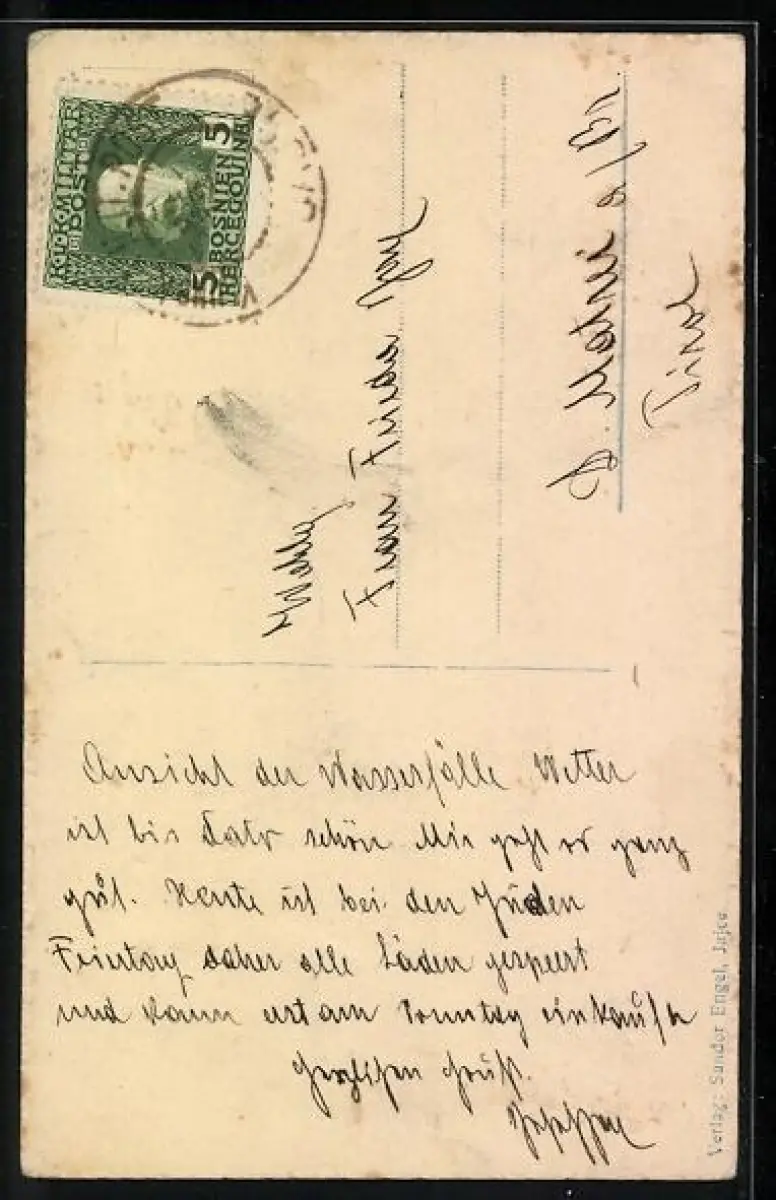 K.U.K. MILITÄR
POST
BOSNIEN
HERCEGOVINA
5
5
Frau Frieda
Matrei a/Br.
Tirol
Ansicht der Wasserfälle Wetter
ist bis dato schön Mir geht es ganz
gut. Heute ist bei den Juden
Feiertag daher alle Läden gesperrt
und kann erst am Sonntag einkaufen
Herzlichen Gruß.
Verlag: Sandor Engel, Jajce